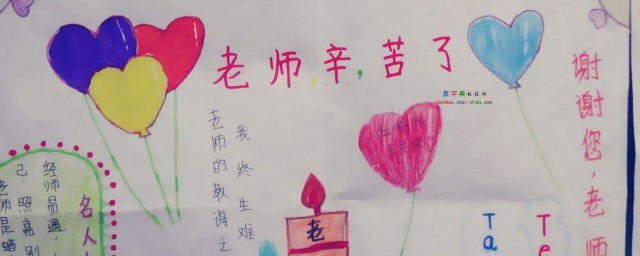 老师,辛,苦了
查字典教僮网
hanban.chazidian.com
谢谢您,老师
我终生难
老师的教诲之
名人
经师易遇,
己,照亮别
老师是蜡
老
Ta
Te